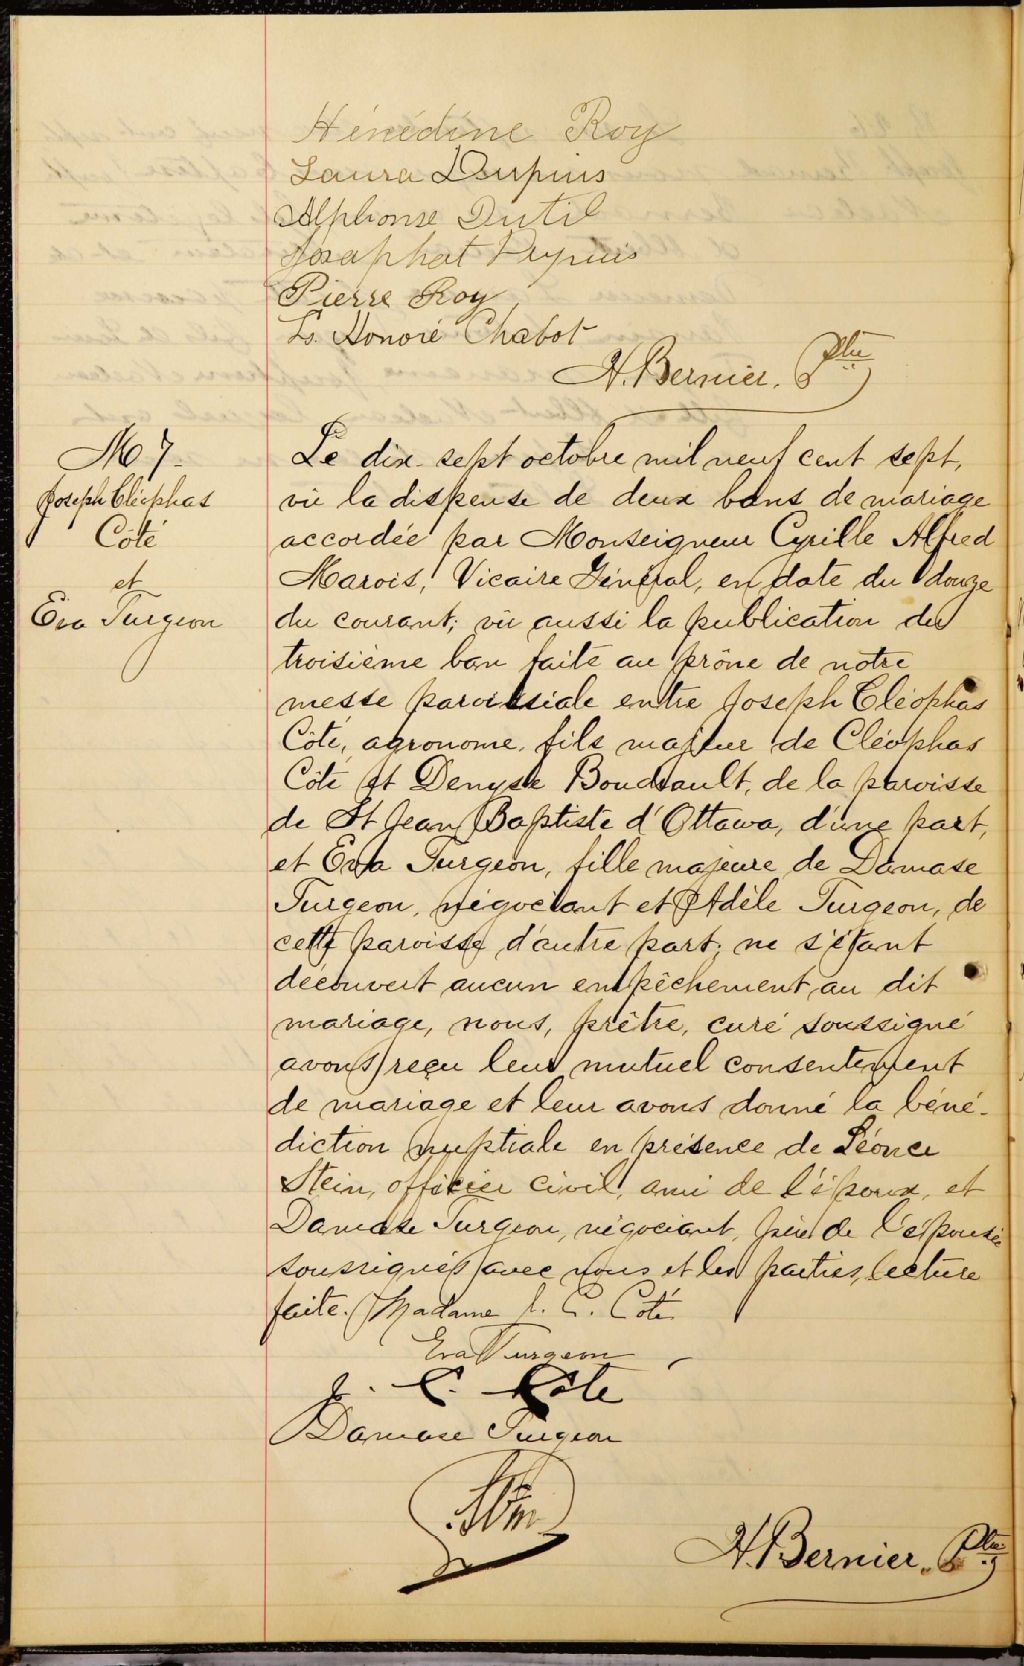 Hénédine Roy
Laura Dupuis
Alphonse Dutil
Josaphat Dupuis
Pierre Roy
Ls. Honoré Chabot
H. Bernier, Ptre
M 7
Joseph Cléophas
Côté
et
Eva Turgeon
Le dix-sept octobre mil neuf cent sept,
vu la dispense de deux bans de mariage
accordée par Monseigneur Cyrille Alfred
Marois, Vicaire Général, en date du douze
du courant; vu aussi la publication du
troisième ban faite au prône de notre
messe paroissiale entre Joseph Cléophas
Côté, agronome, fils majeur de Cléophas
Côté et Denyse Boudrault, de la paroisse
de St Jean Baptiste d'Ottawa, d'une part,
et Eva Turgeon, fille majeure de Damase
Turgeon, négociant et Adèle Turgeon, de
cette paroisse d'autre part; ne s'étant
découvert aucun empêchement au dit
mariage, nous, prêtre, curé soussigné
avons reçu leur mutuel consentement
de mariage et leur avons donné la béné-
diction nuptiale en présence de Léonce
Stein, officier civil, ami de l'époux, et
Damase Turgeon, négociant, père de l'épousée
soussignés avec nous et les parties, lecture
faite. Madame J. C. Côté
Eva Turgeon
J. C. Côté
Damase Turgeon
H. Bernier, Ptre